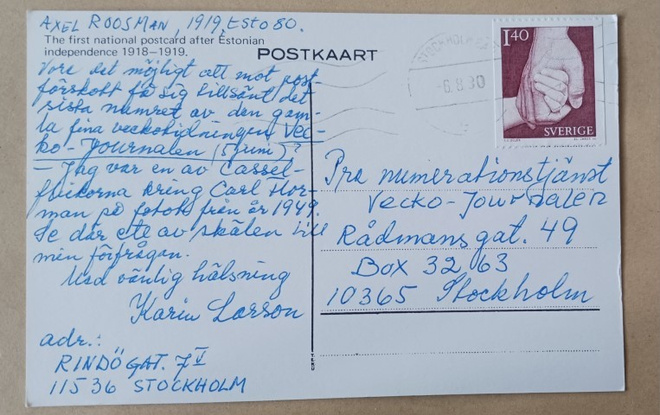 AXEL ROOSMAN, 1919, ESTO 80.
The first national postcard after Estonian
independence 1918–1919.
POSTKAART
Vore det möjligt att mot post-
förskott få sig tillsänt det
sista numret av den gam-
la fina veckotidningen Vec-
ko-Journalen (5 juni)?
– Jag var en av Cassel-
flickorna kring Carl Hor-
man på fotot från år 1949.
Se där ett av skälen till
min förfrågan.
Med vänlig hälsning
Karin Larsson
adr.:
RINDÖGAT. 7 V
11536 STOCKHOLM
STOCKHOLM
-6.8.80
1.40
SVERIGE
Pra numerationstjänst
Vecko-Journalen
Rådmansgat. 49
Box 3263
10365 Stockholm